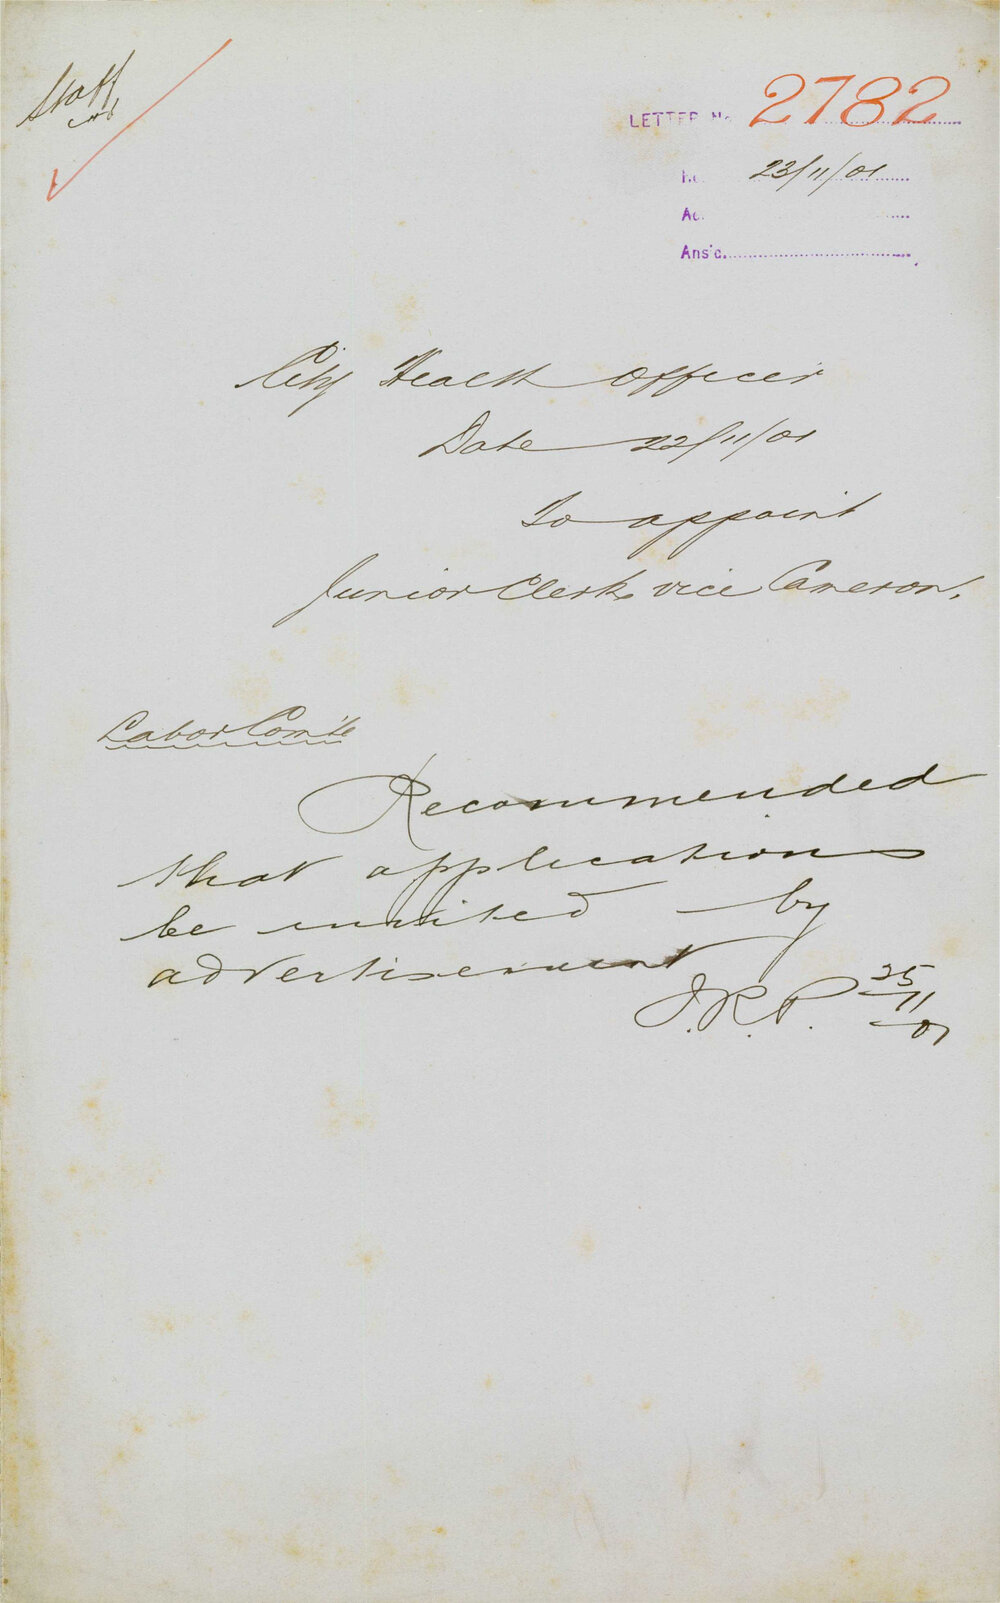 Staff
LETTER No 2782
Re 23/11/01
Ac
Ans'd.
City Health Officer
Date 22/11/01
To appoint
Junior Clerk vice Cameron.
Labor Comite
Recommended
that applications
be invited by
advertisement
J.R.P. 25/11/01